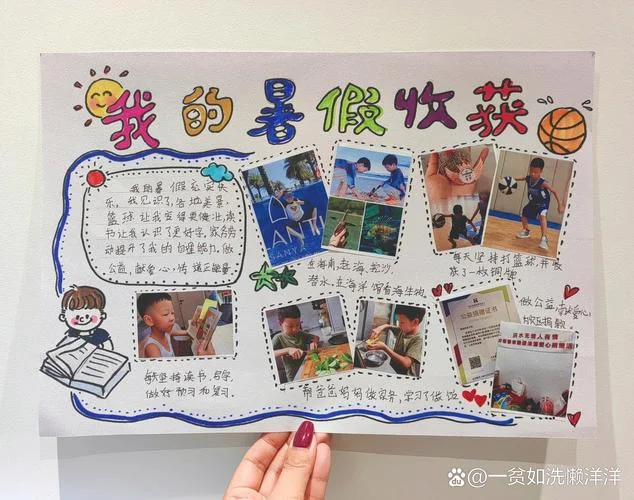 我的暑假收获
我的暑假充实快
乐,我见识了各地美景,
篮球让我变得更健壮,读
书让我认识了更多字,家务劳
动提升了我的自理能力,做
公益,献爱心,传递正能量
SANYA
在海南,赶海,挖沙,
潜水,在海洋馆看海生物.
每天坚持打篮球,并收
获了一枚铜牌
做公益,献爱心
公益捐赠证书
洪水无情人有情
每天坚持读书,写字,
做好预习和复习.
帮爸爸妈妈做家务,学习了做饭
Bai du @一贫如洗懒洋洋